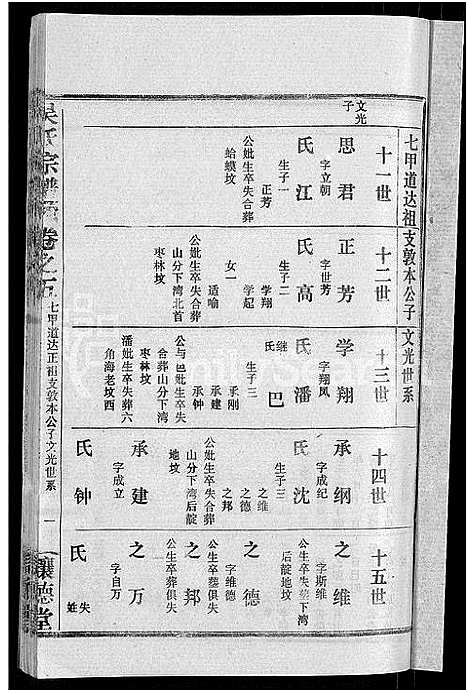 七甲道达祖支敦本公子文光世系
文光子
十一世
思君
字立朝
氏江
生子一
正芳
公妣生卒失合葬
蛤蟆坟
十二世
正芳
字世芳
氏高
生子二
学翔
学起
女一
适喻
公妣生卒失合葬
山分下湾北首
枣林坟
十三世
学翔
字翔凤
氏潘
继氏巴
生子三
承刚
承建
承钟
公与巴妣生卒失
合葬山分下湾
枣林坟
潘妣生卒失葬六
角海老坟西
十四世
承纲
字成纪
氏沈
生子三
之维
之德
之邦
公妣生卒失合葬
山分下湾后靛
地坟
承建
字成立
氏钟
十五世
之维
字斯维
公生卒失葬下湾
后靛地坟
之德
字维德
公生卒葬俱失
之邦
公生卒葬俱失
之万
字自万
氏
失姓
吴氏宗谱
卷之五
七甲道达正祖支敦本公子文光世系
一
让德堂